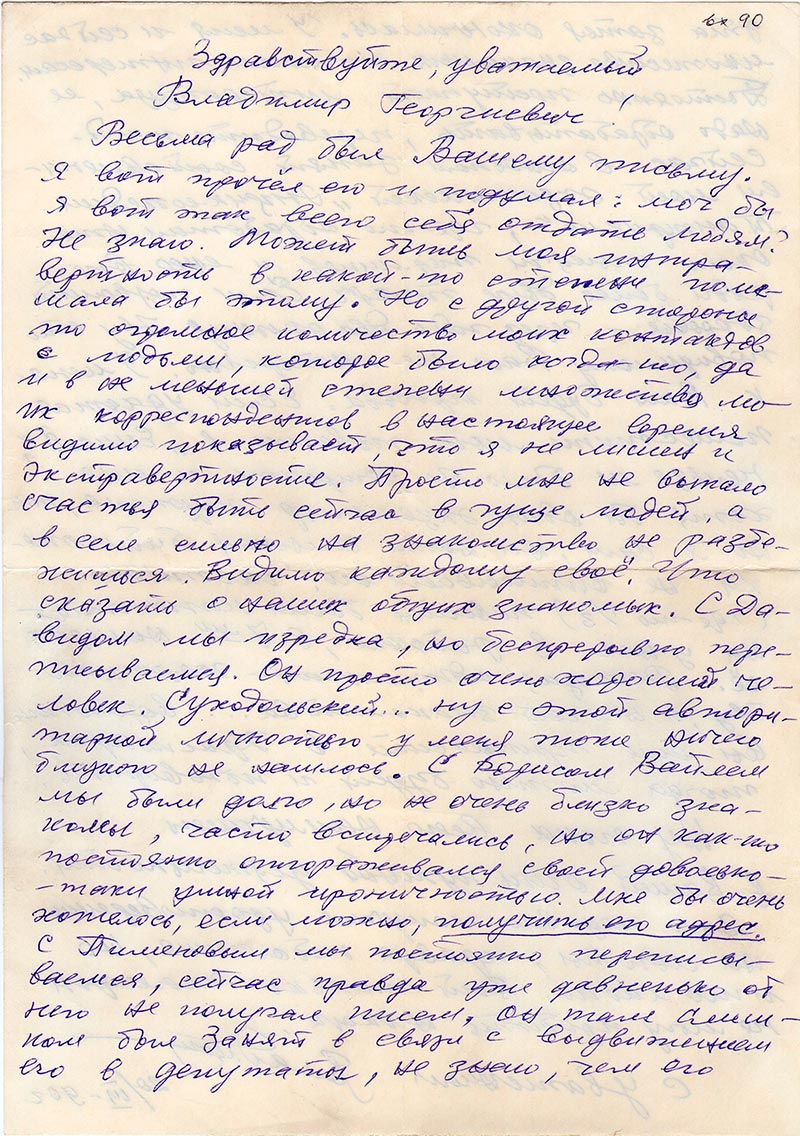 вх 90
Здравствуйте, уважаемый
Владимир Георгиевич!
Весьма рад был Вашему письму.
Я вот прочёл его и подумал: мог бы
я вот так всего себя отдать людям?
Не знаю. Может быть моя интра-
вертность в какой-то степени поме-
шала бы этому. Но с другой стороны
то огромное количество моих контактов
с людьми, которое было когда-то, да
и в не меньшей степени множество мо-
их корреспондентов в настоящее время
видимо показывает, что я не лишен и
экстравертности. Просто мне не выпало
счастья быть сейчас в гуще людей, а
в селе сильно на знакомство не разбе-
жишься. Видимо каждому своё. Что
сказать о наших общих знакомых. С Да-
видом мы изредка, но беспрерывно пере-
писываемся. Он просто очень хороший че-
ловек. Суходольский... ну с этой автори-
тарной личностью у меня тоже ничего
близкого не нашлось. С Борисом Вайлем
мы были долго, но не очень близко зна-
комы, часто встречались, но он как-то
постоянно отгораживался своей довольно-
-таки умной ироничностью. Мне бы очень
хотелось, если можно, получить его адрес.
С Пименовым мы постоянно переписы-
ваемся, сейчас правда уже давненько от
него не получал писем. Он там слиш-
ком был занят в связи с выдвижением
его в депутаты, не знаю, чем его